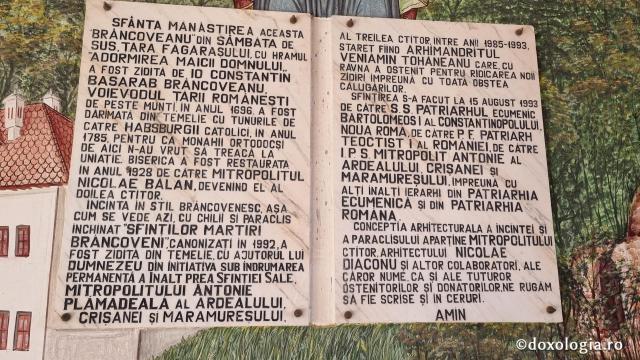 SFÂNTA MÂNĂSTIREA ACEASTA
"BRÂNCOVEANU" DIN SÂMBĂTA DE
SUS, ȚARA FĂGĂRAȘULUI, CU HRAMUL
"ADORMIREA MAICII DOMNULUI,
A FOST ZIDITĂ DE IO CONSTANTIN
BASARAB BRÂNCOVEANU,
VOIEVODUL ȚĂRII ROMÂNEȘTI
DE PESTE MUNȚI, ÎN ANUL 1696, A FOST
DĂRÎMATĂ DIN TEMELIE CU TUNURILE DE
CĂTRE HABSBURGII CATOLICI, ÎN ANUL
1785, PENTRU CĂ MONAHII ORTODOCȘI
DE AICI N-AU VRUT SĂ TREACĂ LA
UNIAȚIE. BISERICA A FOST RESTAURATĂ
ÎN ANUL 1928 DE CĂTRE MITROPOLITUL
NICOLAE BĂLAN, DEVENIND EL AL
DOILEA CTITOR.
INCINTA ÎN STIL BRÂNCOVENESC, AȘA
CUM SE VEDE AZI, CU CHILII ȘI PARACLIS
ÎNCHINAT "SFINȚILOR MARTIRI
BRÂNCOVENI", CANONIZAȚI ÎN 1992, A
FOST ZIDITĂ DIN TEMELIE, CU AJUTORUL LUI
DUMNEZEU DIN INIȚIATIVA SUB ÎNDRUMAREA
PERMANENTĂ A ÎNALT PREA SFINȚIEI SALE,
MITROPOLITULUI ANTONIE
PLĂMĂDEALĂ AL ARDEALULUI,
CRIȘANEI ȘI MARAMUREȘULUI,
AL TREILEA CTITOR, ÎNTRE ANII 1985-1993,
STAREȚ FIIND ARHIMANDRITUL
VENIAMIN TOHĂNEANU CARE, CU
RÂVNĂ A OSTENIT PENTRU RIDICAREA NOII
ZIDIRI ÎMPREUNĂ CU TOATĂ OBSTEA
CĂLUGĂRILOR.
SFINȚIREA S-A FĂCUT LA 15 AUGUST 1993
DE CĂTRE S.S. PATRIARHUL ECUMENIC
BARTOLOMEOS I AL CONSTANTINOPOLULUI,
NOUA ROMĂ, DE CĂTRE P.F. PATRIARH
TEOCTIST I AL ROMÂNIEI, DE CĂTRE
I.P.S. MITROPOLIT ANTONIE AL
ARDEALULUI, CRIȘANEI ȘI
MARAMUREȘULUI, ÎMPREUNĂ CU
ALȚI ÎNALȚI IERARHI DIN PATRIARHIA
ECUMENICĂ ȘI DIN PATRIARHIA
ROMÂNĂ.
CONCEPȚIA ARHITECTURALĂ A INCINTEI ȘI
A PARACLISULUI APARȚINE MITROPOLITULUI
CTITOR, ARHITECTULUI NICOLAE
DIACONU ȘI ALTOR COLABORATORI, ALE
CĂROR NUME, CA ȘI ALE TUTUROR
OSTENITORILOR ȘI DONATORILOR, NE RUGĂM
SĂ FIE SCRISE ȘI ÎN CERURI.
AMIN
©doxologia.ro